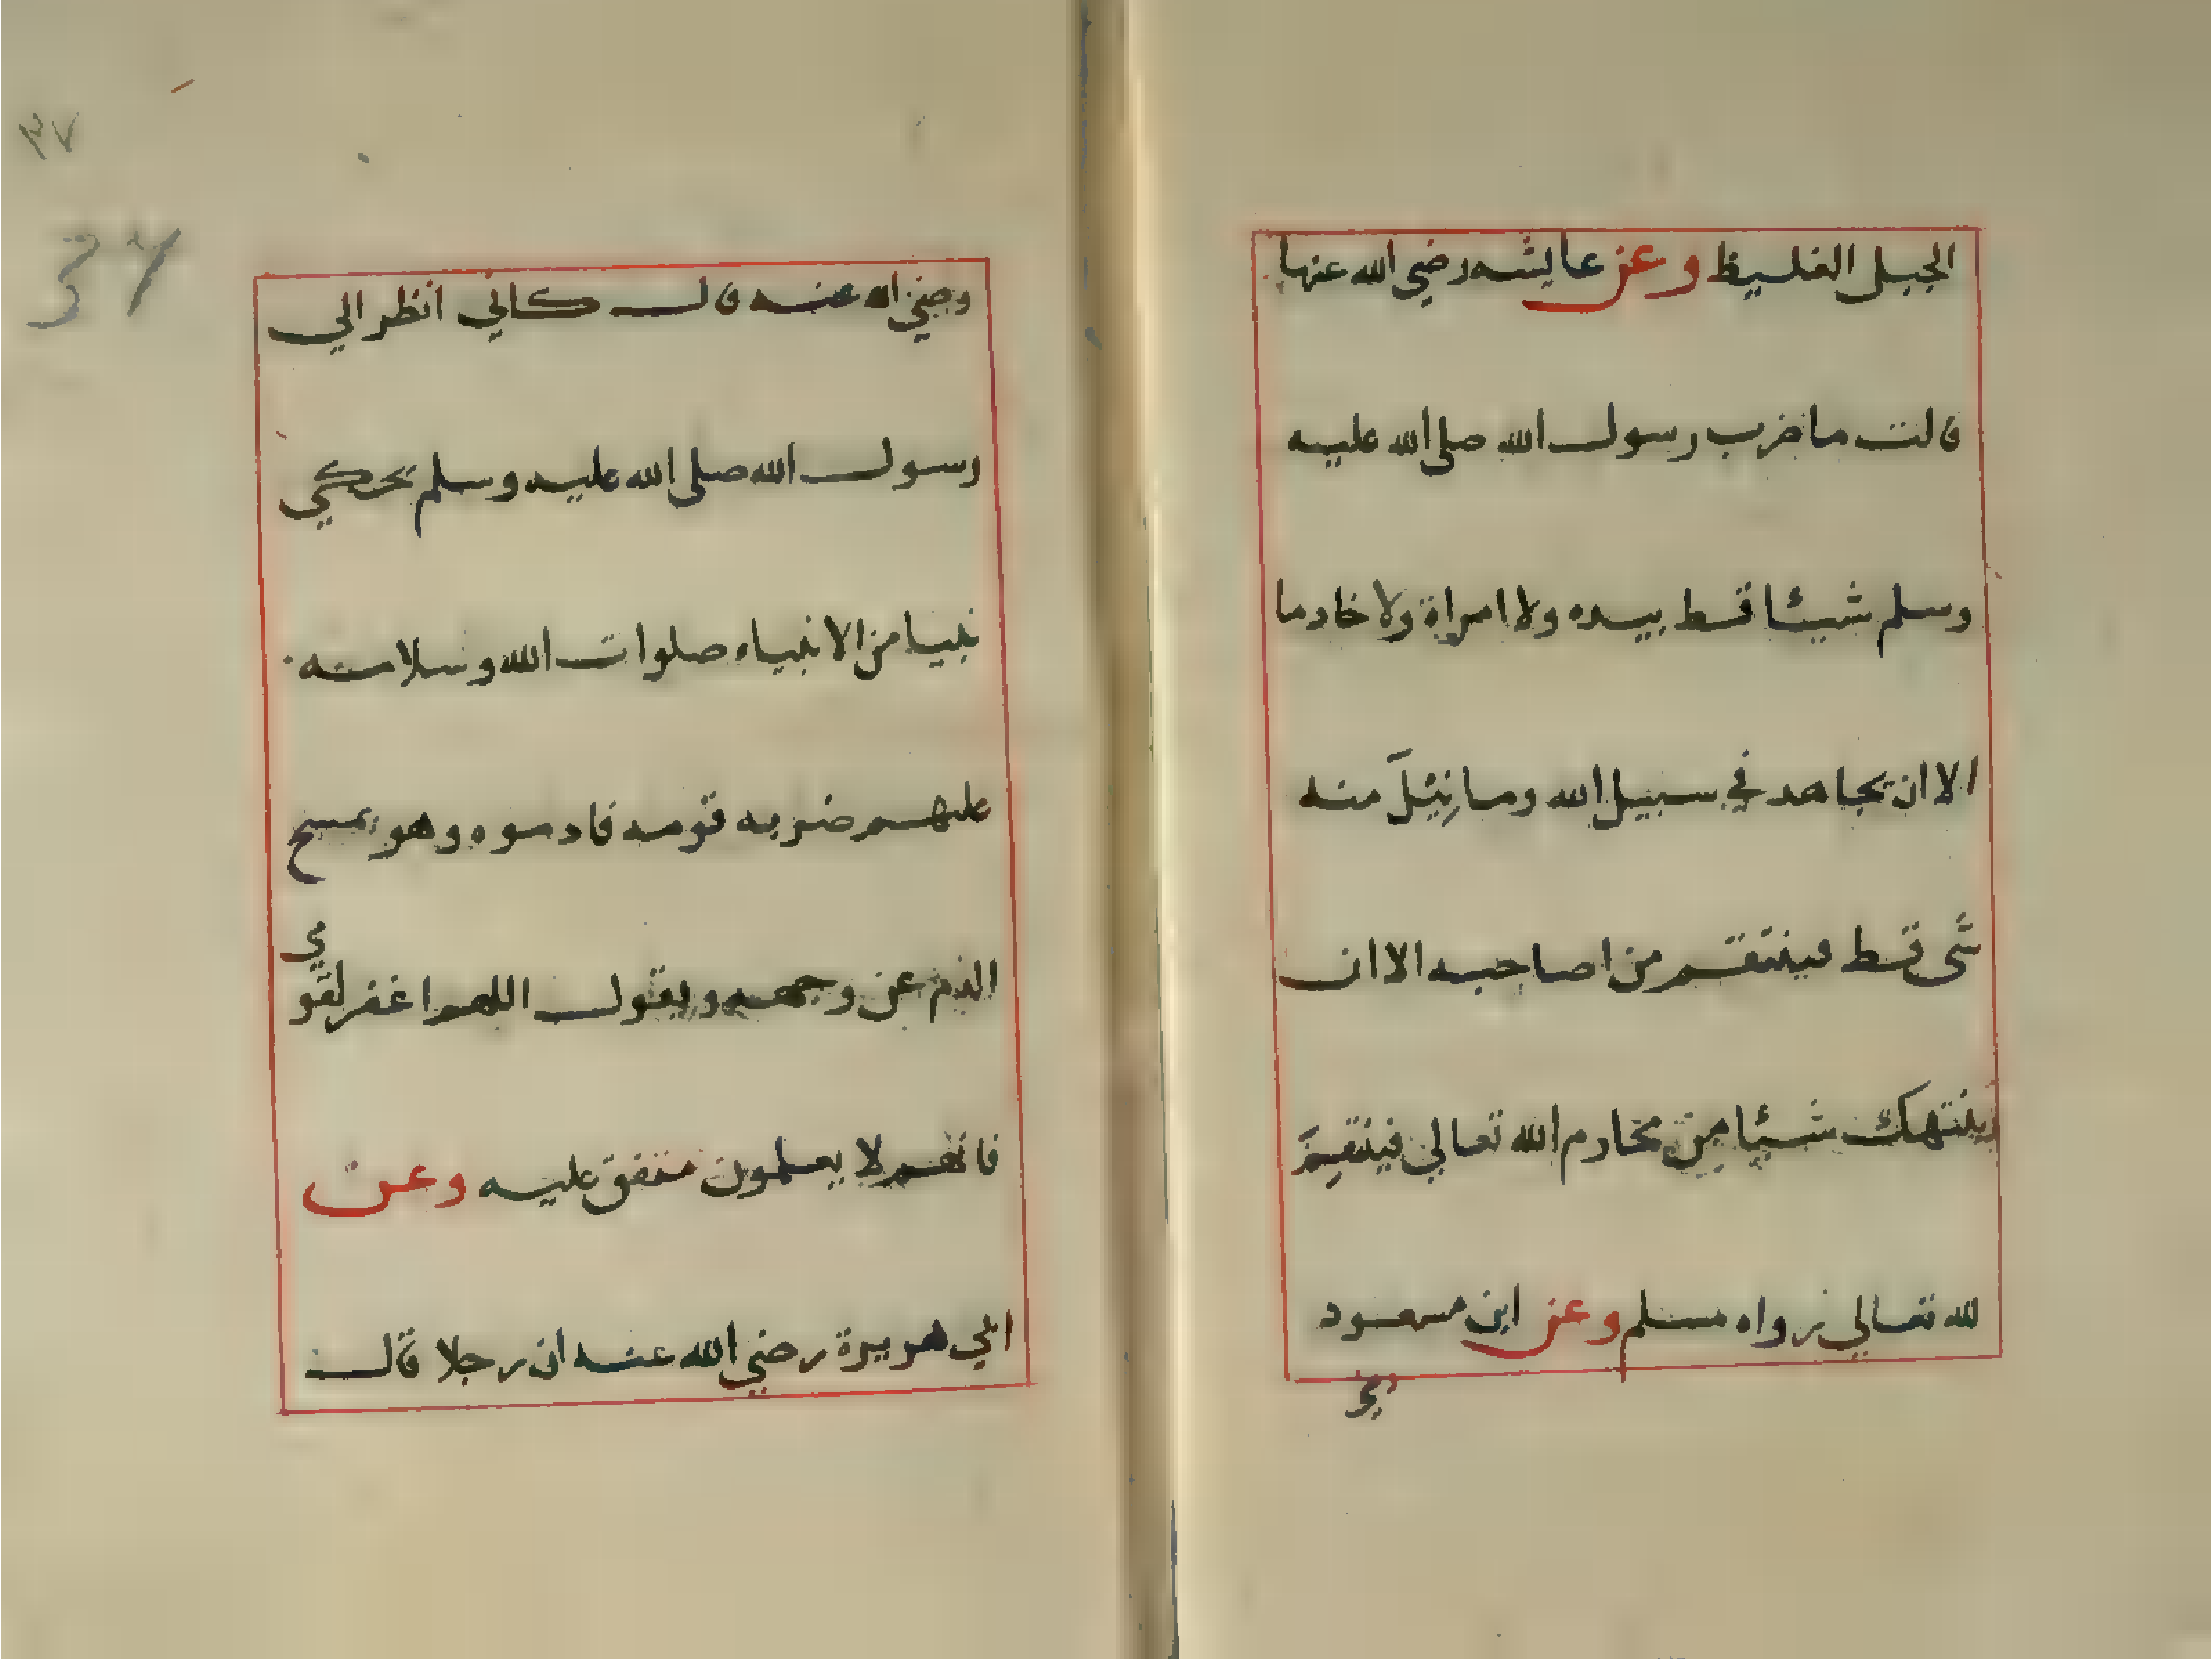 الجبل الغليظ وعن عايشه رضي الله عنها
قالت ما ضرب رسول الله صلى الله عليه
وسلم شيئا قط بيده ولا امراة ولا خادما
الا ان يجاهد في سبيل الله وما نِيْلَ منه
شى قط فينتقم من اصاحبه الا ان
ينتهك شيئا مِن محارم الله تعالي فينتقِمَ
لله تعالي رواه مسلم وعن ابن مسعود
٣٧
37
وضي الله عنه قال كاني انظر الي
رسول الله صلى الله عليه وسلم يحكي
نبيا من الانبياء صلوات الله وسلامته
عليهم ضربه قومه فادموه وهو يمسح
الدم عن وجهه ويقول اللهم اغفر لقومي
فانهم لا يعلمون متفق عليه وعن
ابي هريرة رضي الله عنه ان رجلا قال